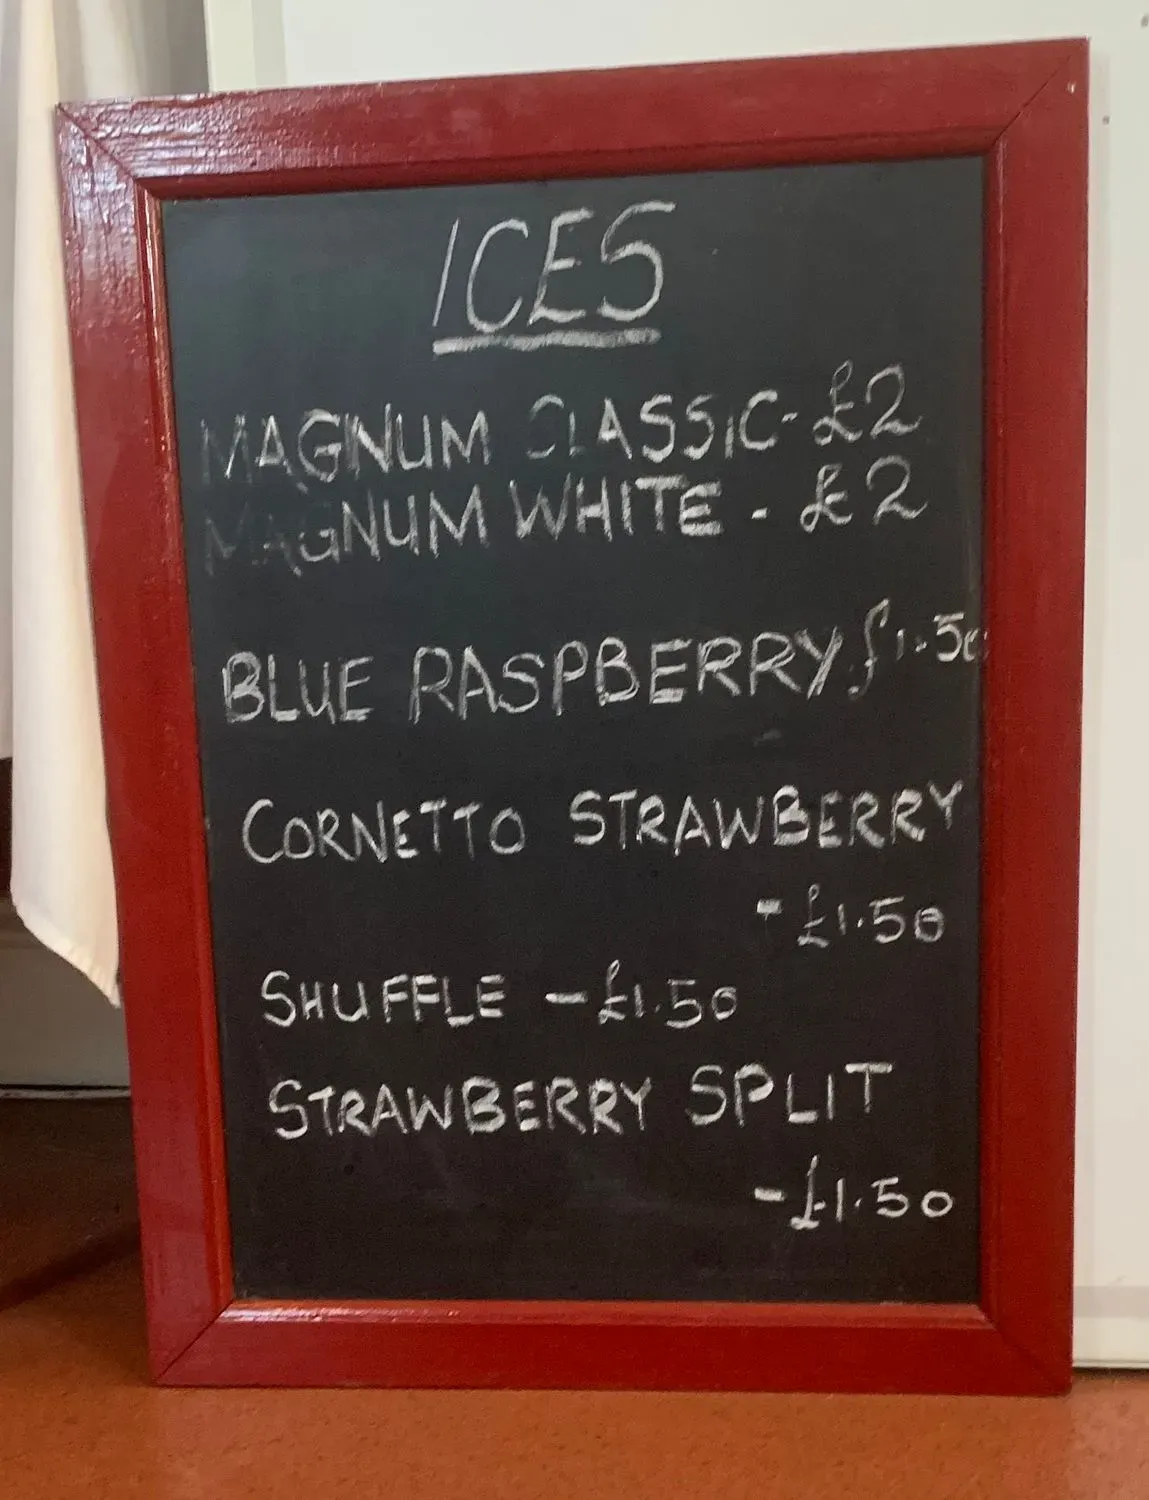 ICES
MAGNUM CLASSIC - £2
MAGNUM WHITE - £2
BLUE RASPBERRY £1.50
CORNETTO STRAWBERRY
- £1.50
SHUFFLE - £1.50
STRAWBERRY SPLIT
- £1.50